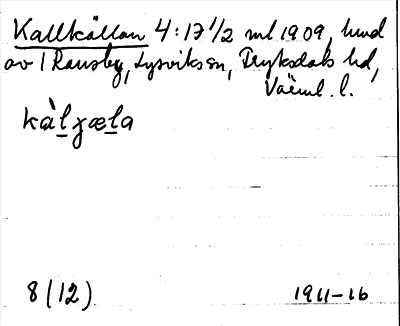 Kallkällan 4:17 1/2 ml. 1909, hmd
av 1 Ransby, Lysviks sn, Fryksdals hd,
Värml. l.
kàlχæla
8 (12)
1911-16